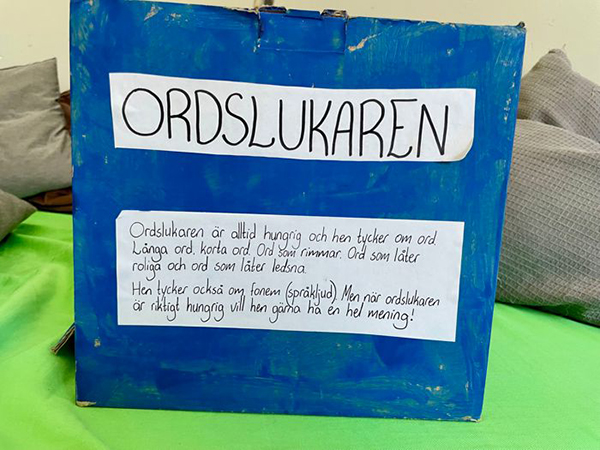 ORDSLUKAREN
Ordslukaren är alltid hungrig och hen tycker om ord.
Långa ord, korta ord. Ord som rimmar. Ord som låter
roliga och ord som låter ledsna.
Hen tycker också om fonem (språkljud) Men när ordslukaren
är riktigt hungrig vill hen gärna ha en hel mening!